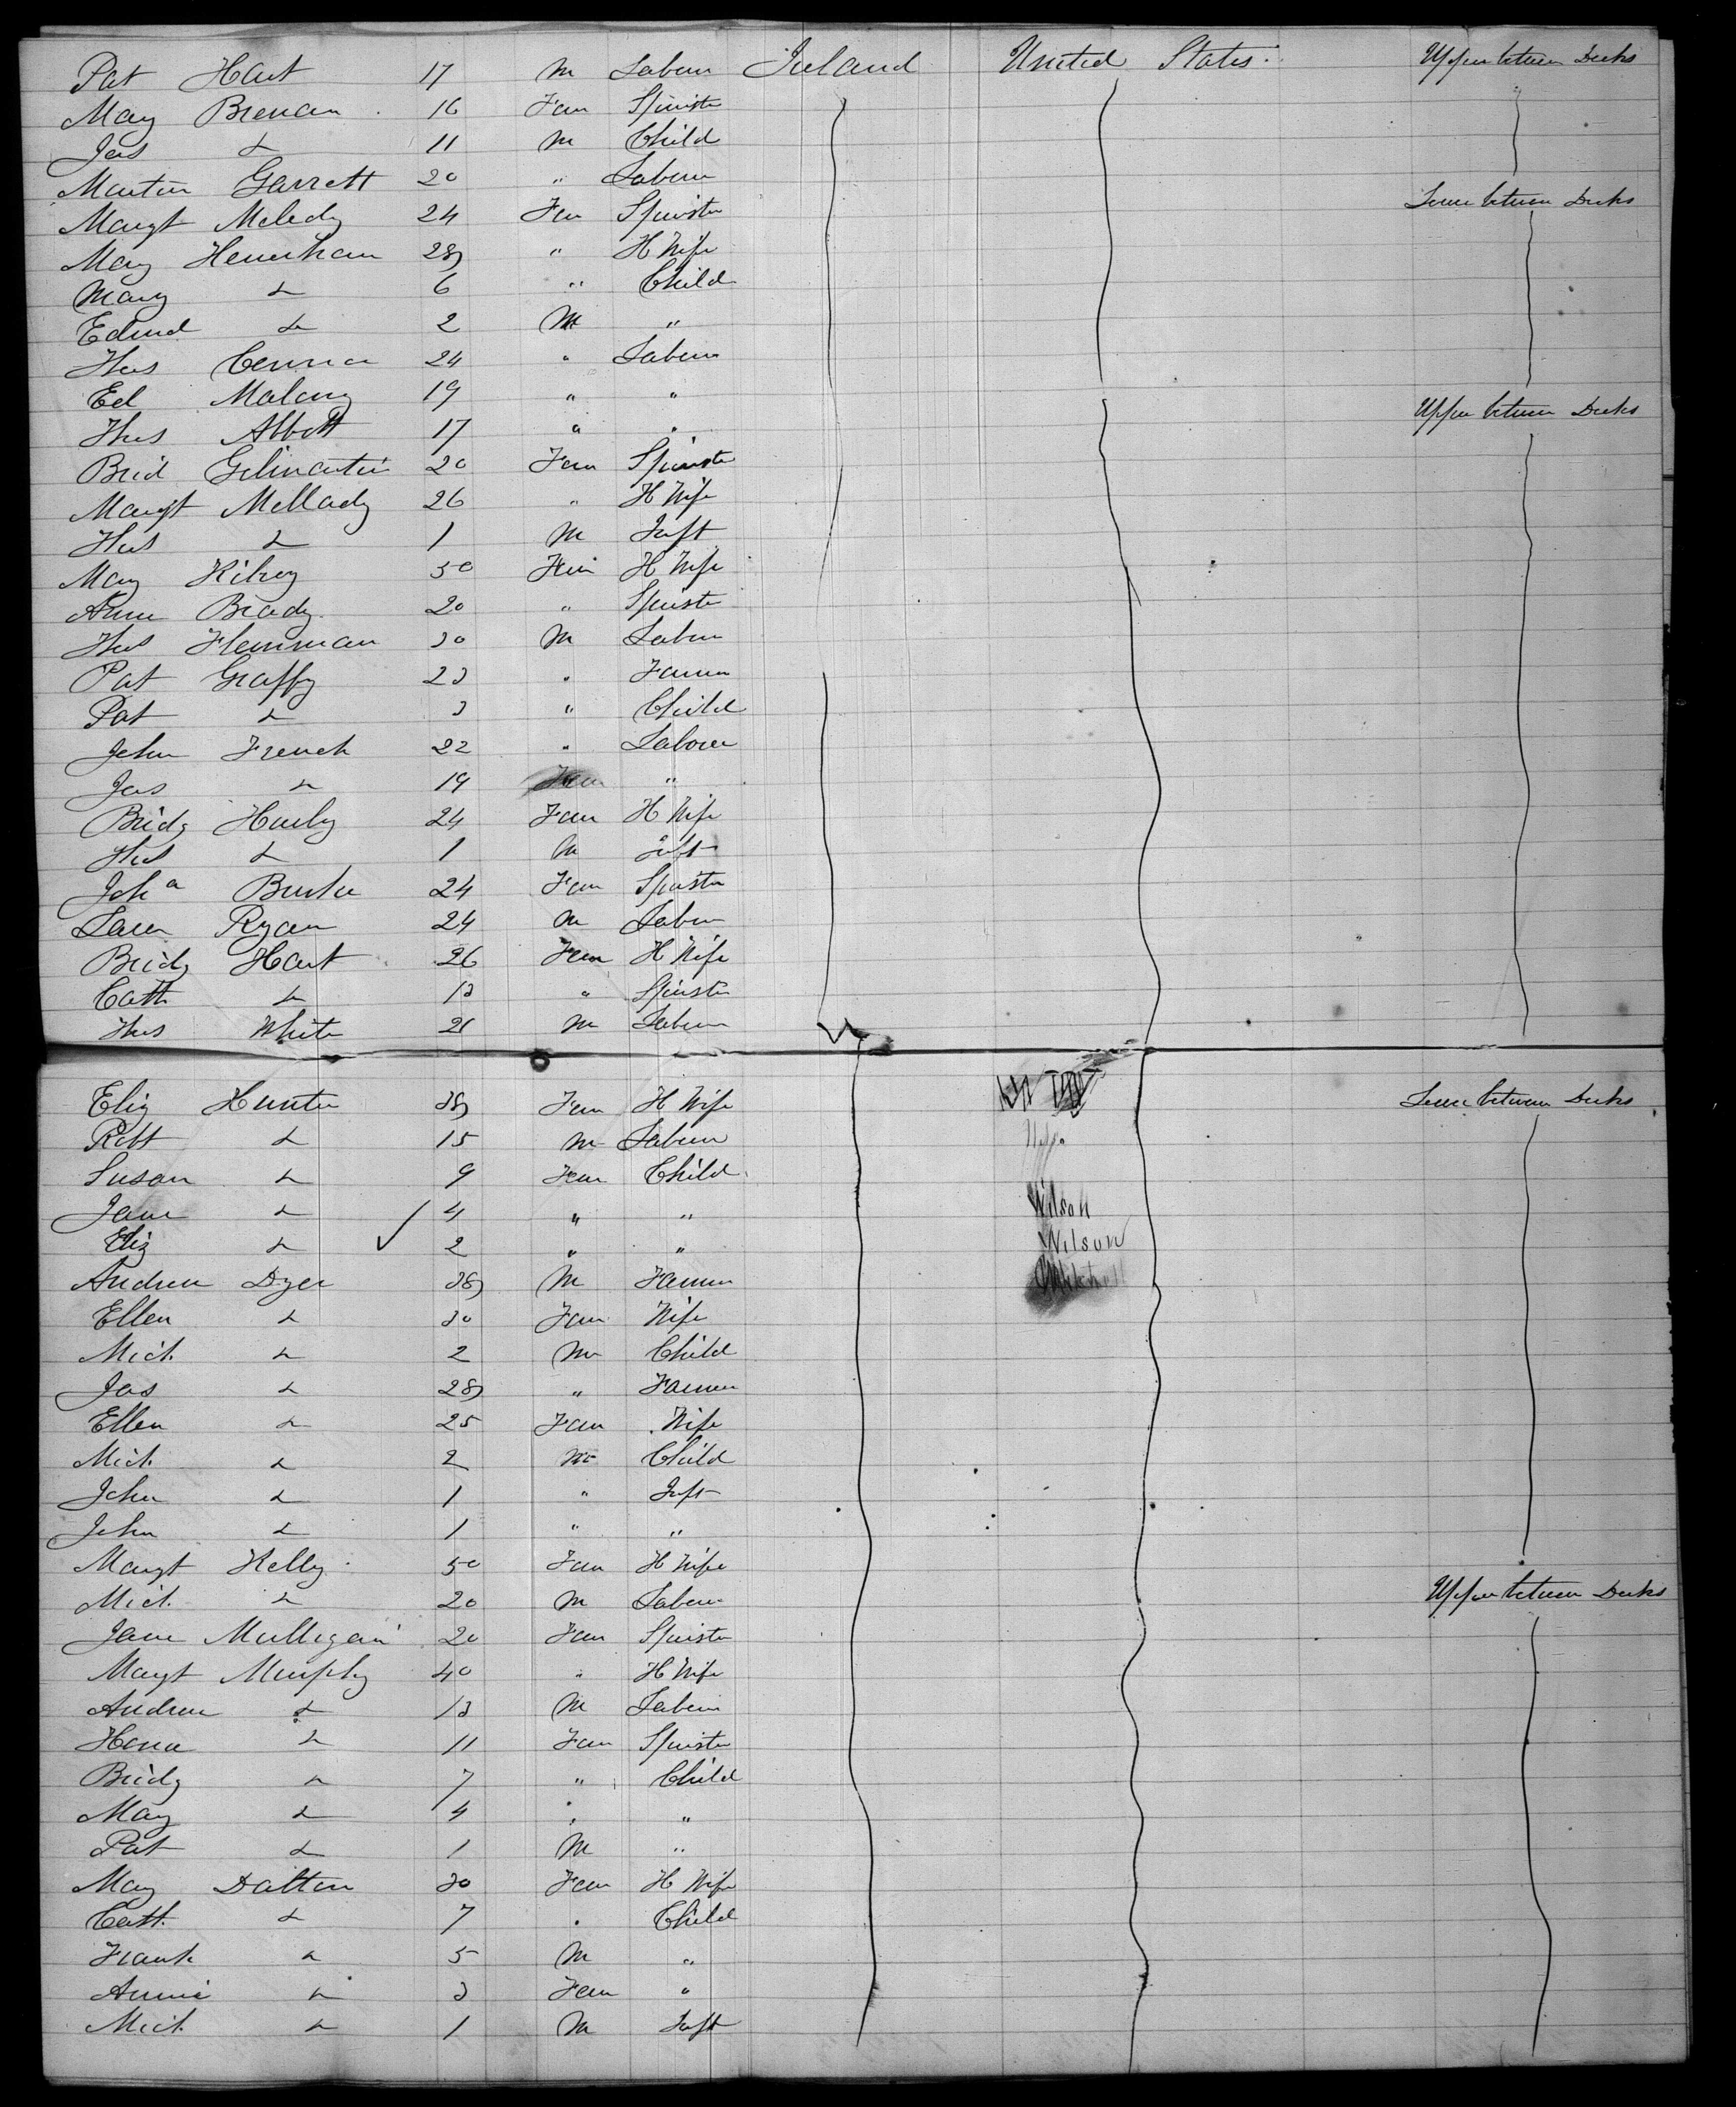 Pat Hart 17 M Laborer Ireland United States. Upper between Decks
Mary Brenan 16 Fem Spinster
Jas Do 11 M Child
Martin Garrett 20 " Laborer
Margt Meledy 24 Fem Spinster Lower between Decks
Mary 28 " H Wife
Mary Do 6 " Child
Edmd Do 2 M "
Thos 24 " Laborer
Ed Malony 19 " "
Thos Abbott 17 " " Upper between Decks
Brid Gilmartin 20 Fem Spinster
Margt Mellady 26 " H Wife
Thos Do 1 M Inft
Mary Kilroy 50 Fem H Wife
Anne Brady 20 " Spinster
Thos 30 M Laborer
Pat Graffy 23 " Farmer
Pat Do 3 " Child
John French 22 " Laborer
Jas Do 19 "
Bridg Hurley 24 Fem H Wife
Thos Do 1 M Inft
Joha Burke 24 Fem Spinster
Laur Ryan 24 M Laborer
Bridg Hart 26 Fem H Wife
Cath Do 13 " Spinster
Thos White 21 M Laborer
Eliz Hunter 38 Fem H Wife Lower between Decks
Robt Do 15 M Laborer
Susan Do 9 Fem Child
Jane Do 4 " " Wilson
Eliz Do 2 " " Wilson
Andrew Dyer 38 M Farmer
Ellen Do 30 Fem Wife
Mich Do 2 M Child
Jas Do 28 " Farmer
Ellen Do 25 Fem Wife
Mich Do 2 M Child
John Do 1 " Inft
John Do 1 " "
Margt Kelly 50 Fem H Wife
Mich Do 20 M Laborer Upper between Decks
Jane Mulligan 20 Fem Spinster
Margt Murphy 40 " H Wife
Andrew Do 13 M Laborer
Hana Do 11 Fem Spinster
Bridg Do 7 " Child
Mary Do 4 " "
Pat Do 1 M "
Mary Dalton 30 Fem H Wife
Cath Do 7 " Child
Frank Do 5 M "
Annie Do 3 Fem "
Mich Do 1 M Inft